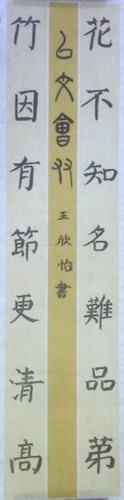 花不知名難品第
以文會友
王欣怡書
竹因有節更清高